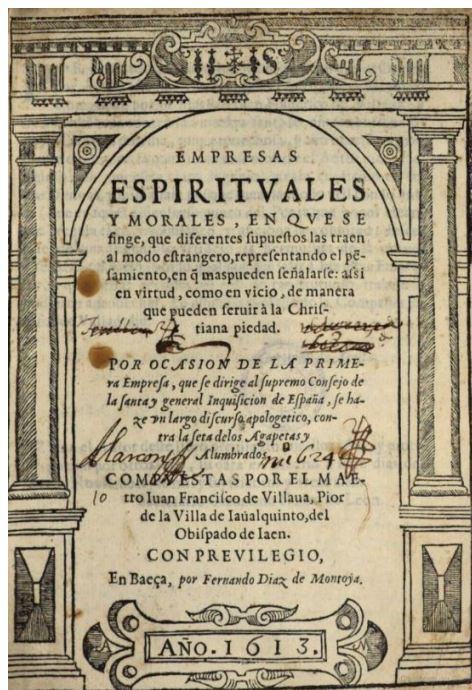 IHS
EMPRESAS
ESPIRITVALES
Y MORALES, EN QVE SE
finge, que diferentes supuestos las traen
al modo estrangero, representando el pẽ-
samiento, en q̃ maspueden señalarse: assi
en virtud, como en vicio, de manera
que pueden seruir à la Chris-
tiana piedad.
POR OCASION DE LA PRIME-
ra Empresa, que se dirige al supremo Consejo de
la santa y general Inquisicion de España, se ha-
ze vn largo discurso apologetico, con-
tra la seta delos Agapetas y
Alumbrados.
COMPVESTAS POR EL MAE-
tro Iuan Francisco de Villaua, Pior
de la Villa de Iaũalquinto, del
Obispado de Iaen.
CON PREVILEGIO,
En Baeça, por Fernando Diaz de Montoja.
A M
AÑO. 1613.